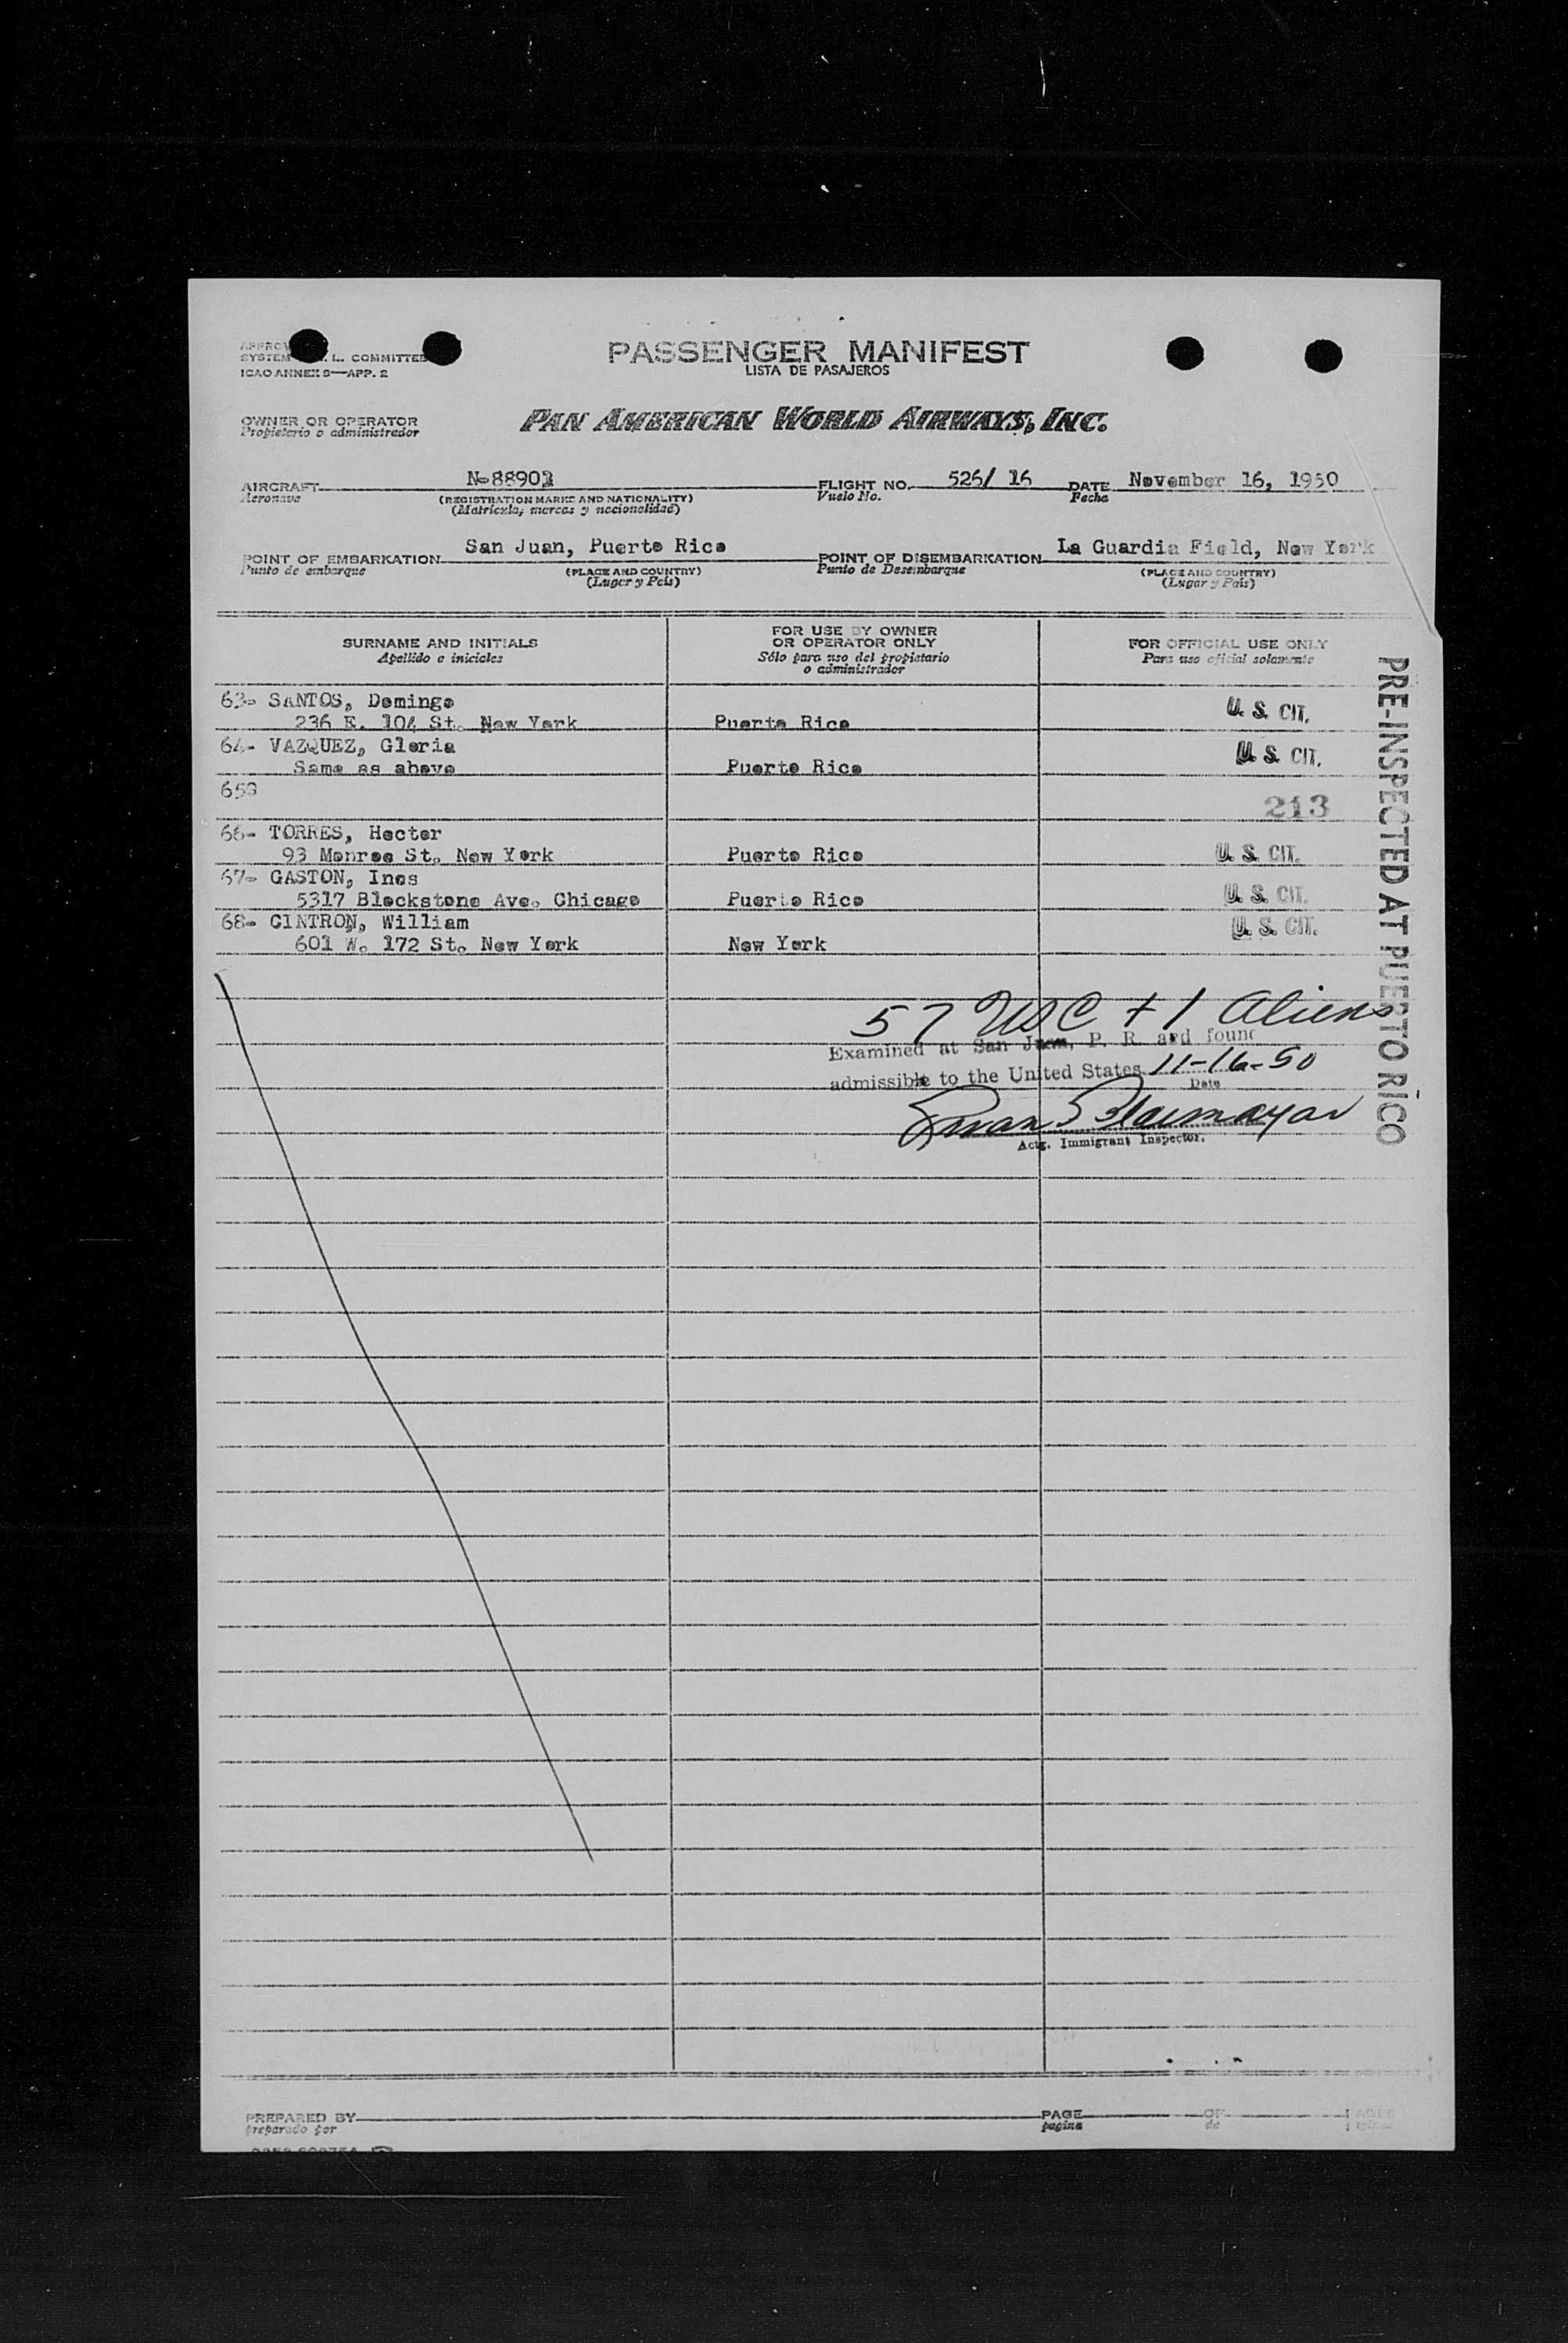 SYSTEM L. COMMITTEE
ICAO ANNEX 9—APP. 2
PASSENGER MANIFEST
LISTA DE PASAJEROS
OWNER OR OPERATOR
Propietario o administrador
PAN AMERICAN WORLD AIRWAYS, INC.
AIRCRAFT N-88901
Aeronave
(REGISTRATION MARKS AND NATIONALITY)
(Matrícula, marcas y nacionalidad)
FLIGHT NO. 526/ 16
Vuelo No.
DATE November 16, 1950
Fecha
POINT OF EMBARKATION San Juan, Puerto Rico
Punto de embarque
(PLACE AND COUNTRY)
(Lugar y País)
POINT OF DISEMBARKATION La Guardia Field, New York
Punto de Desembarque
(PLACE AND COUNTRY)
(Lugar y País)
SURNAME AND INITIALS
Apellido e iniciales
FOR USE BY OWNER
OR OPERATOR ONLY
Sólo para uso del propietario
o administrador
FOR OFFICIAL USE ONLY
Para uso oficial solamente
63- SANTOS, Domingo U. S. CIT.
236 E. 104 St. New York Puerto Rico
64- VAZQUEZ, Gloria U. S. CIT.
Same as above Puerto Rico
65 213
66- TORRES, Hector
93 Monroe St. New York Puerto Rico U. S. CIT.
67- GASTON, Ines
5317 Blackstone Ave. Chicago Puerto Rico U. S. CIT.
68- CINTRON, William U. S. CIT.
601 W. 172 St. New York New York
57 USC + 1 Aliens
Examined at San Juan, P. R. and found
admissible to the United States 11-16-50
Date
Actg. Immigrant Inspector.
PRE-INSPECTED AT PUERTO RICO
PREPARED BY
preparado por
PAGE OF PAGES
página de